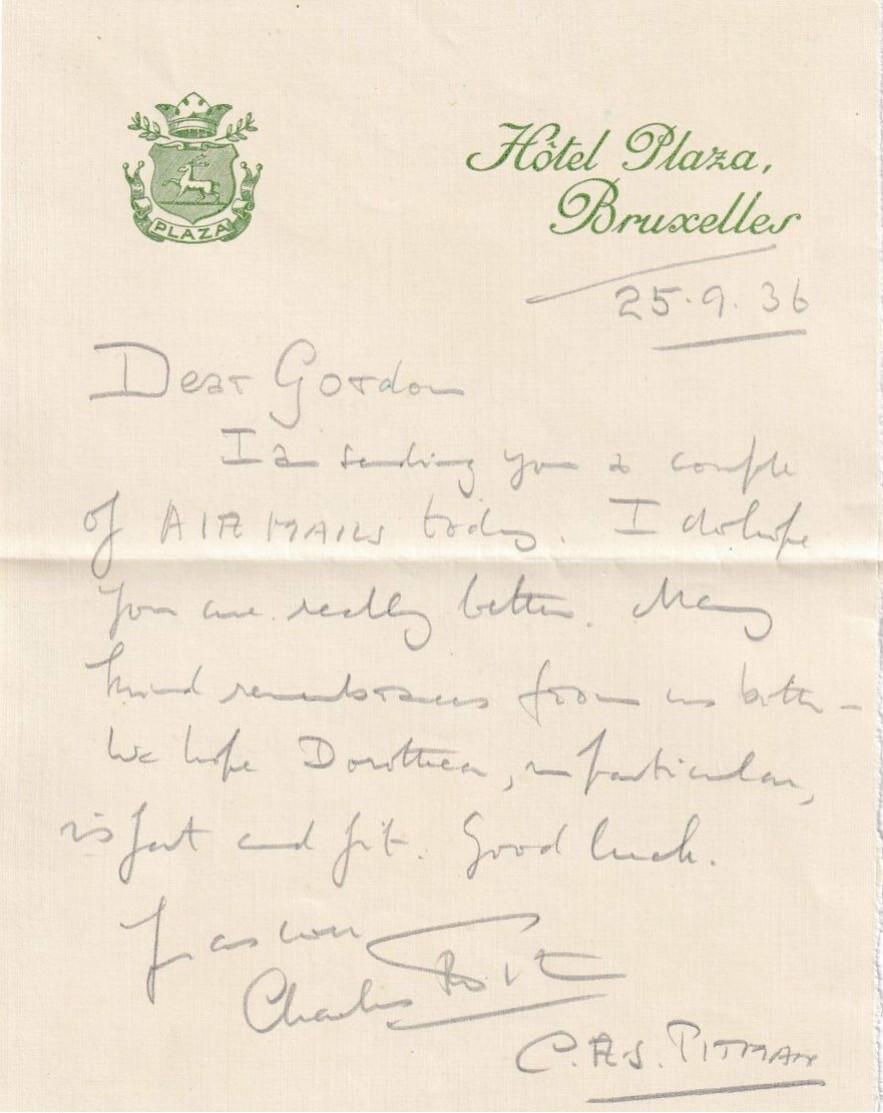 PLAZA
Hôtel Plaza,
Bruxelles
25.9.36
Dear Gordon
I am sending you a couple
of AIR MAILS today. I do hope
you are really better. Many
kind remembrances from us both –
We hope Dorothea, in particular,
is fat and fit. Good luck.
Charles
C.R.S. PITMAN